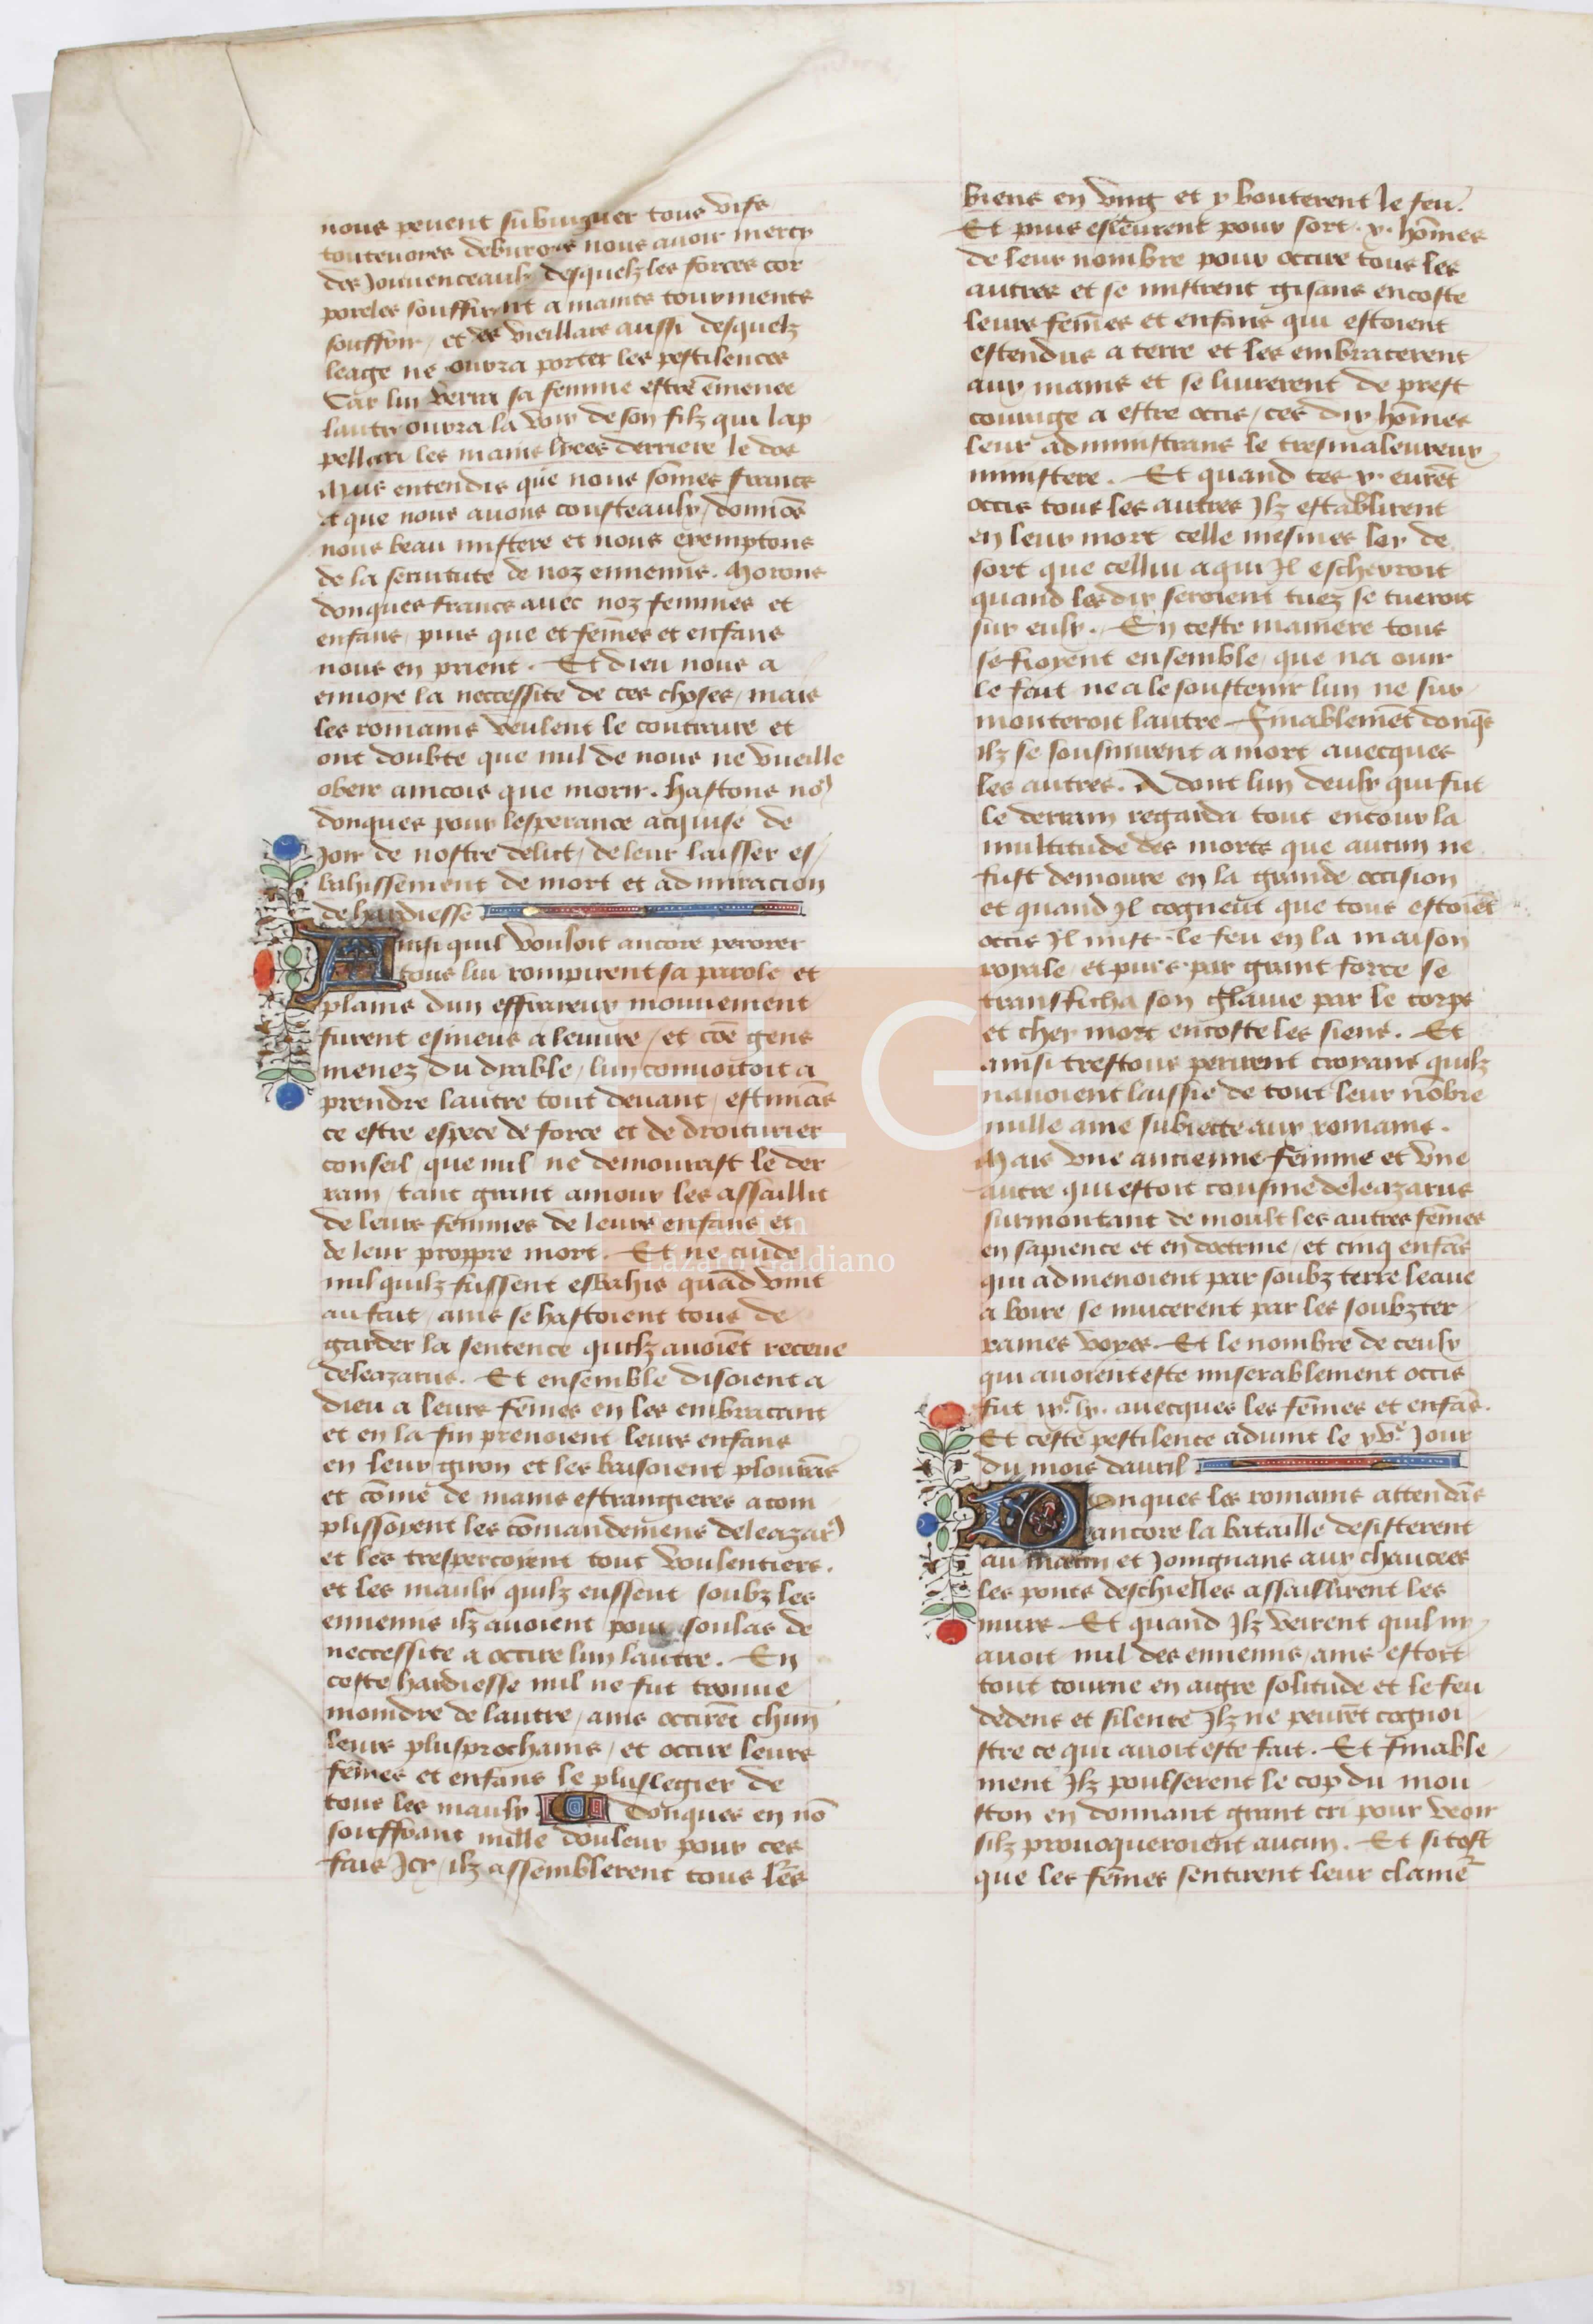 nous peuent subiuguer tous vifs
touteuoies deburoie nous auoir mercy
des Jouuenceaulx desquelz les forces cor
poreles souffiront a maints tourments
souffrir / et es vieillars aussi desquelz
leage ne pourra porter les pestilences
Car lun verra sa femme estre ēmenee
lautr ourra la voix de son filz qui lap
pellera les mains lyees derriere le dos
Mais entendis que nous sōmes francs
et que nous auons cousteaulx / donnōs
nous beau mistere et nous exemptons
de la seruitute de noz ennemis . Morons
donques francs auec noz femmes et
enfans / puis que et fēmes et enfans
nous en prient . Et dieu nous a
enuoye la neccessite de ces choses / mais
les romains veulent le contraire et
ont doubte que nul de nous ne vueille
obeir aincois que morir . hastons no9
donques pour lesperance acquise de
Joir de nostre delict / de leur laisser es /
bahissement de mort et admiracion
de hardiesse
Ainsi quil vouloit ancore perorer
tous lui rompirent sa parole et
plains dun effraieux mouuement
furent esmeus a leuure / et cōe gens
menez du diable / lun conuoitoit a
prendre lautre tout deuant / estimās
ce estre espece de force et de droiturier
conseil / que nul ne demourast le der
rain / tant grant amour les assaillit
de leurs femmes de leurs enfans et
de leur proppre mort . Et ne cuide
nul quilz fussent esbahis quād vint
au fait / ains se hastoient tous de
garder la sentence quilz auoiēt receue
deleazarus . Et ensemble disoient a
dieu a leurs fēmes en les embracant
et en la fin prenoient leurs enfans
en leur giron et les baisoient plourās
et cōme de mains estrangieres acom
plissoyent les cōmandemens deleazar9
et les trespercoyent tout voulentiers .
et les maulx quilz eussent soubz les
ennemis ilz auoient pour soulas de
neccessite a occire lun lautre . En
ceste hardiesse nul ne fut trouue
moindre de lautre / ains occirēt chūn
leurs plusprochains / et occire leurs
fēmes et enfans le pluslegier de
tous les maulx . O Donques en nō
souffrant nulle douleur pour ces
fais Icy / ilz assemblerent tous lrēs
biens en vng et y bouterent le feu .
Et puis esleurent pour sort . x . hōmes
de leur nombre pour occire tous les
autres et se mistrent gisans encoste
leurs fēmes et enfans qui estoient
estendus a terre et les embracerent
aux mains et se liurerent de prest
courage a estre occis / ces dix hōmes
leur administrans le tresmaleureux
ministere . Et quand ces x . eurēt
occis tous les autres Ilz establirent
en leur mort celle mesmes loy de
sort que cellui a qui Il escherroit
quand les dix seroient tuez se tueroit
sur eulx . En ceste maniere tous
se fioyent ensemble / que na ouir
le fait ne a le soustenir lun ne sur /
monteroit lautre . Finablemēt donqs
ilz se sousmirent a mort auecques
les autres . Adont lun deulx qui fut
le derrain regarda tout entour la
multitude des morts que aucun ne
fust demoure en la grande occision
et quand Il cogneut que tous estoiēt
occis Il mist le feu en la maison
royale / et puis par grant force se
transficha son glaiue par le corps
et chey mort encoste les siens . Et
ainsi trestous perirent croyans quilz
nauoient laissie de tout leur nōbre
nulle ame subiecte aux romains .
Mais vne ancienne femme et vne
autre qui estoit cousine deleazarus
surmontant de moult les autres fēmes
en sapience et en doctrine / et cinq enfās
qui admenoient par soubz terre leaue
a boire / se mucerent par les soubzter
raines voyes . Et le nombre de ceulx
qui auoient este miserablement occis
fut ixc lx . auecques les fēmes et enfās .
Et ceste pestilence aduint le xve Jour
du mois dauril
Donques les romains attendās
ancore la bataille desisterent
au matin et Joingnans aux chaucees
les ponts deschielles assaillirent les
murs . Et quand Ilz veirent quil ny
auoit nul des ennemis / ains estoit
tout tourne en aigre solitude et le feu
dedens et silente Ilz ne peurēt cognoi
stre ce qui auoit este fait . Et finable
ment Ilz poulserent le cop du mou
ston en donnant grant cri pour veoir
silz prouoqueroient aucun . Et sitost
que les fēmes sentirent leur clame2
FLG
Fundación
Lázaro Galdiano